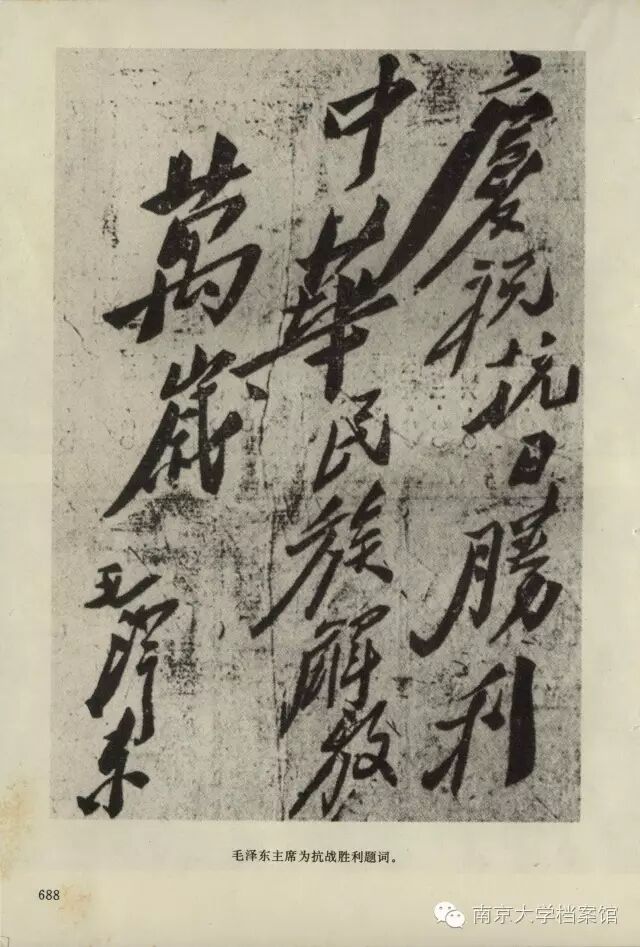 慶祝抗日勝利
中華民族解放
萬歲
毛澤東
毛泽东主席为抗战胜利题词。
688
南京大学档案馆